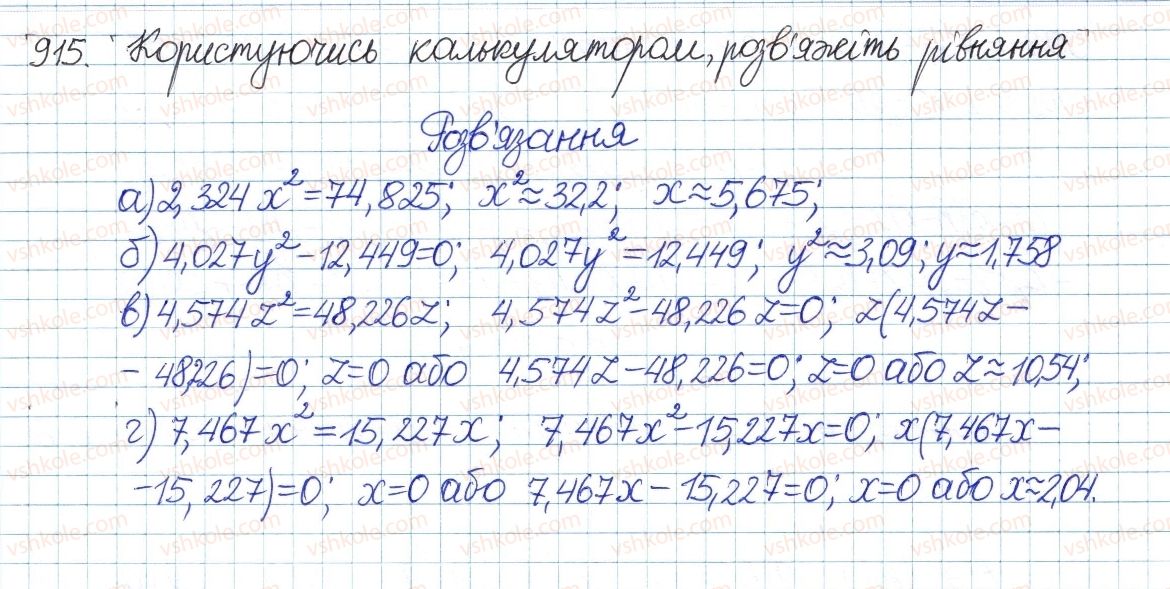 915. Користуючись калькулятором, розв'яжіть рівняння
Розв'язання
а) 2,324x²=74,825; x²≈32,2; x≈5,675;
б) 4,027y²-12,449=0; 4,027y²=12,449; y²≈3,09; y≈1,758
в) 4,574z²=48,226z; 4,574z²-48,226z=0; z(4,574z-
- 48,226)=0; z=0 або 4,574z-48,226=0; z=0 або z≈10,54;
г) 7,467x²=15,227x; 7,467x²-15,227x=0; x(7,467x-
-15,227)=0; x=0 або 7,467x-15,227=0; x=0 або x≈2,04.